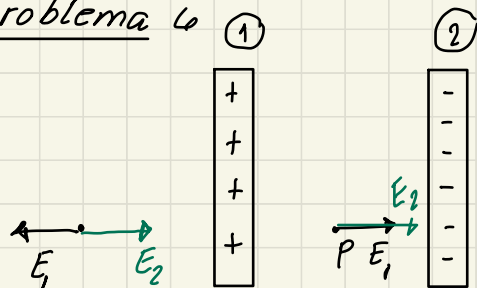 roblema 6 ① ②
+ -
+ -
+ -
+ -
E2
E1 E2 P E1 -
-